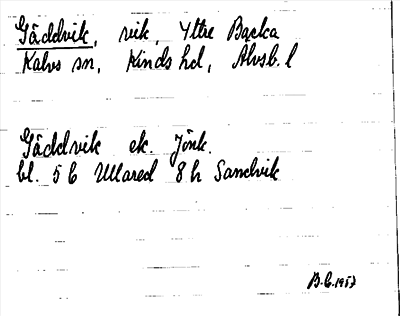 Gäddvik, vik, Yttre Backa
Kalvs sn, Kinds hd, Älvsb. l
Gäddvik ek. Jönk.
bl. 5 C Ullared 8 h Sandvik
B.C. 1957